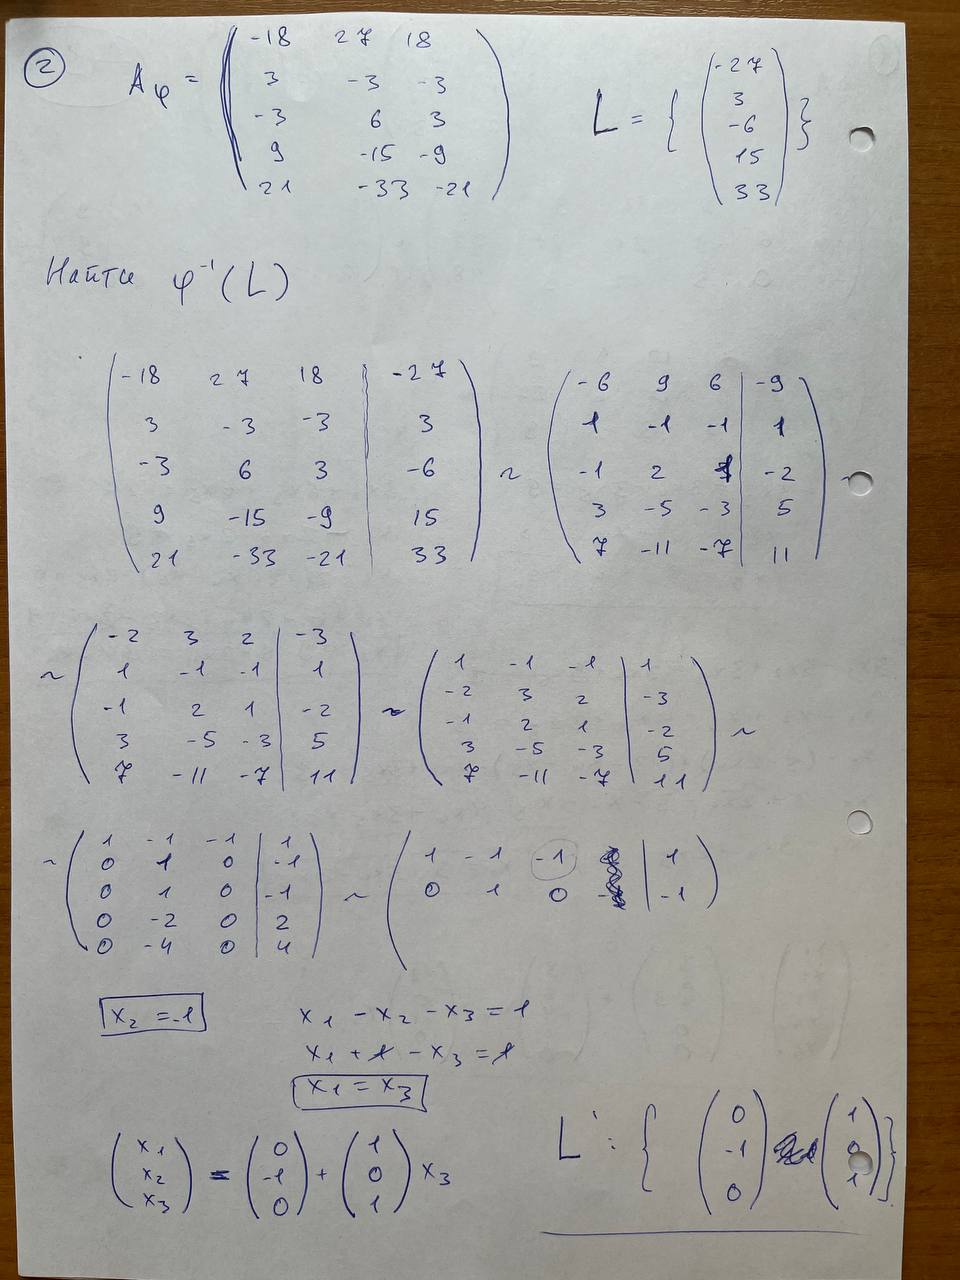 2
A φ = ( -18 27 18
3 -3 -3
-3 6 3
9 -15 -9
21 -33 -21 )
L = { ( -27
3
-6
15
33 ) }
Найти φ⁻¹(L)
( -18 27 18 | -27
3 -3 -3 | 3
-3 6 3 | -6
9 -15 -9 | 15
21 -33 -21 | 33 ) ~
( -6 9 6 | -9
1 -1 -1 | 1
-1 2 1 | -2
3 -5 -3 | 5
7 -11 -7 | 11 ) ~
~ ( -2 3 2 | -3
1 -1 -1 | 1
-1 2 1 | -2
3 -5 -3 | 5
7 -11 -7 | 11 ) ~
( 1 -1 -1 | 1
-2 3 2 | -3
-1 2 1 | -2
3 -5 -3 | 5
7 -11 -7 | 11 ) ~
~ ( 1 -1 -1 | 1
0 1 0 | -1
0 1 0 | -1
0 -2 0 | 2
0 -4 0 | 4 ) ~
( 1 -1 -1 | 1
0 1 0 | -1 )
x2 = -1
x1 - x2 - x3 = 1
x1 + 1 - x3 = 1
x1 = x3
( x1
x2
x3 ) = ( 0
-1
0 ) + ( 1
0
1 ) x3
L' : { ( 0
-1
0 ) ( 1
0
1 ) }